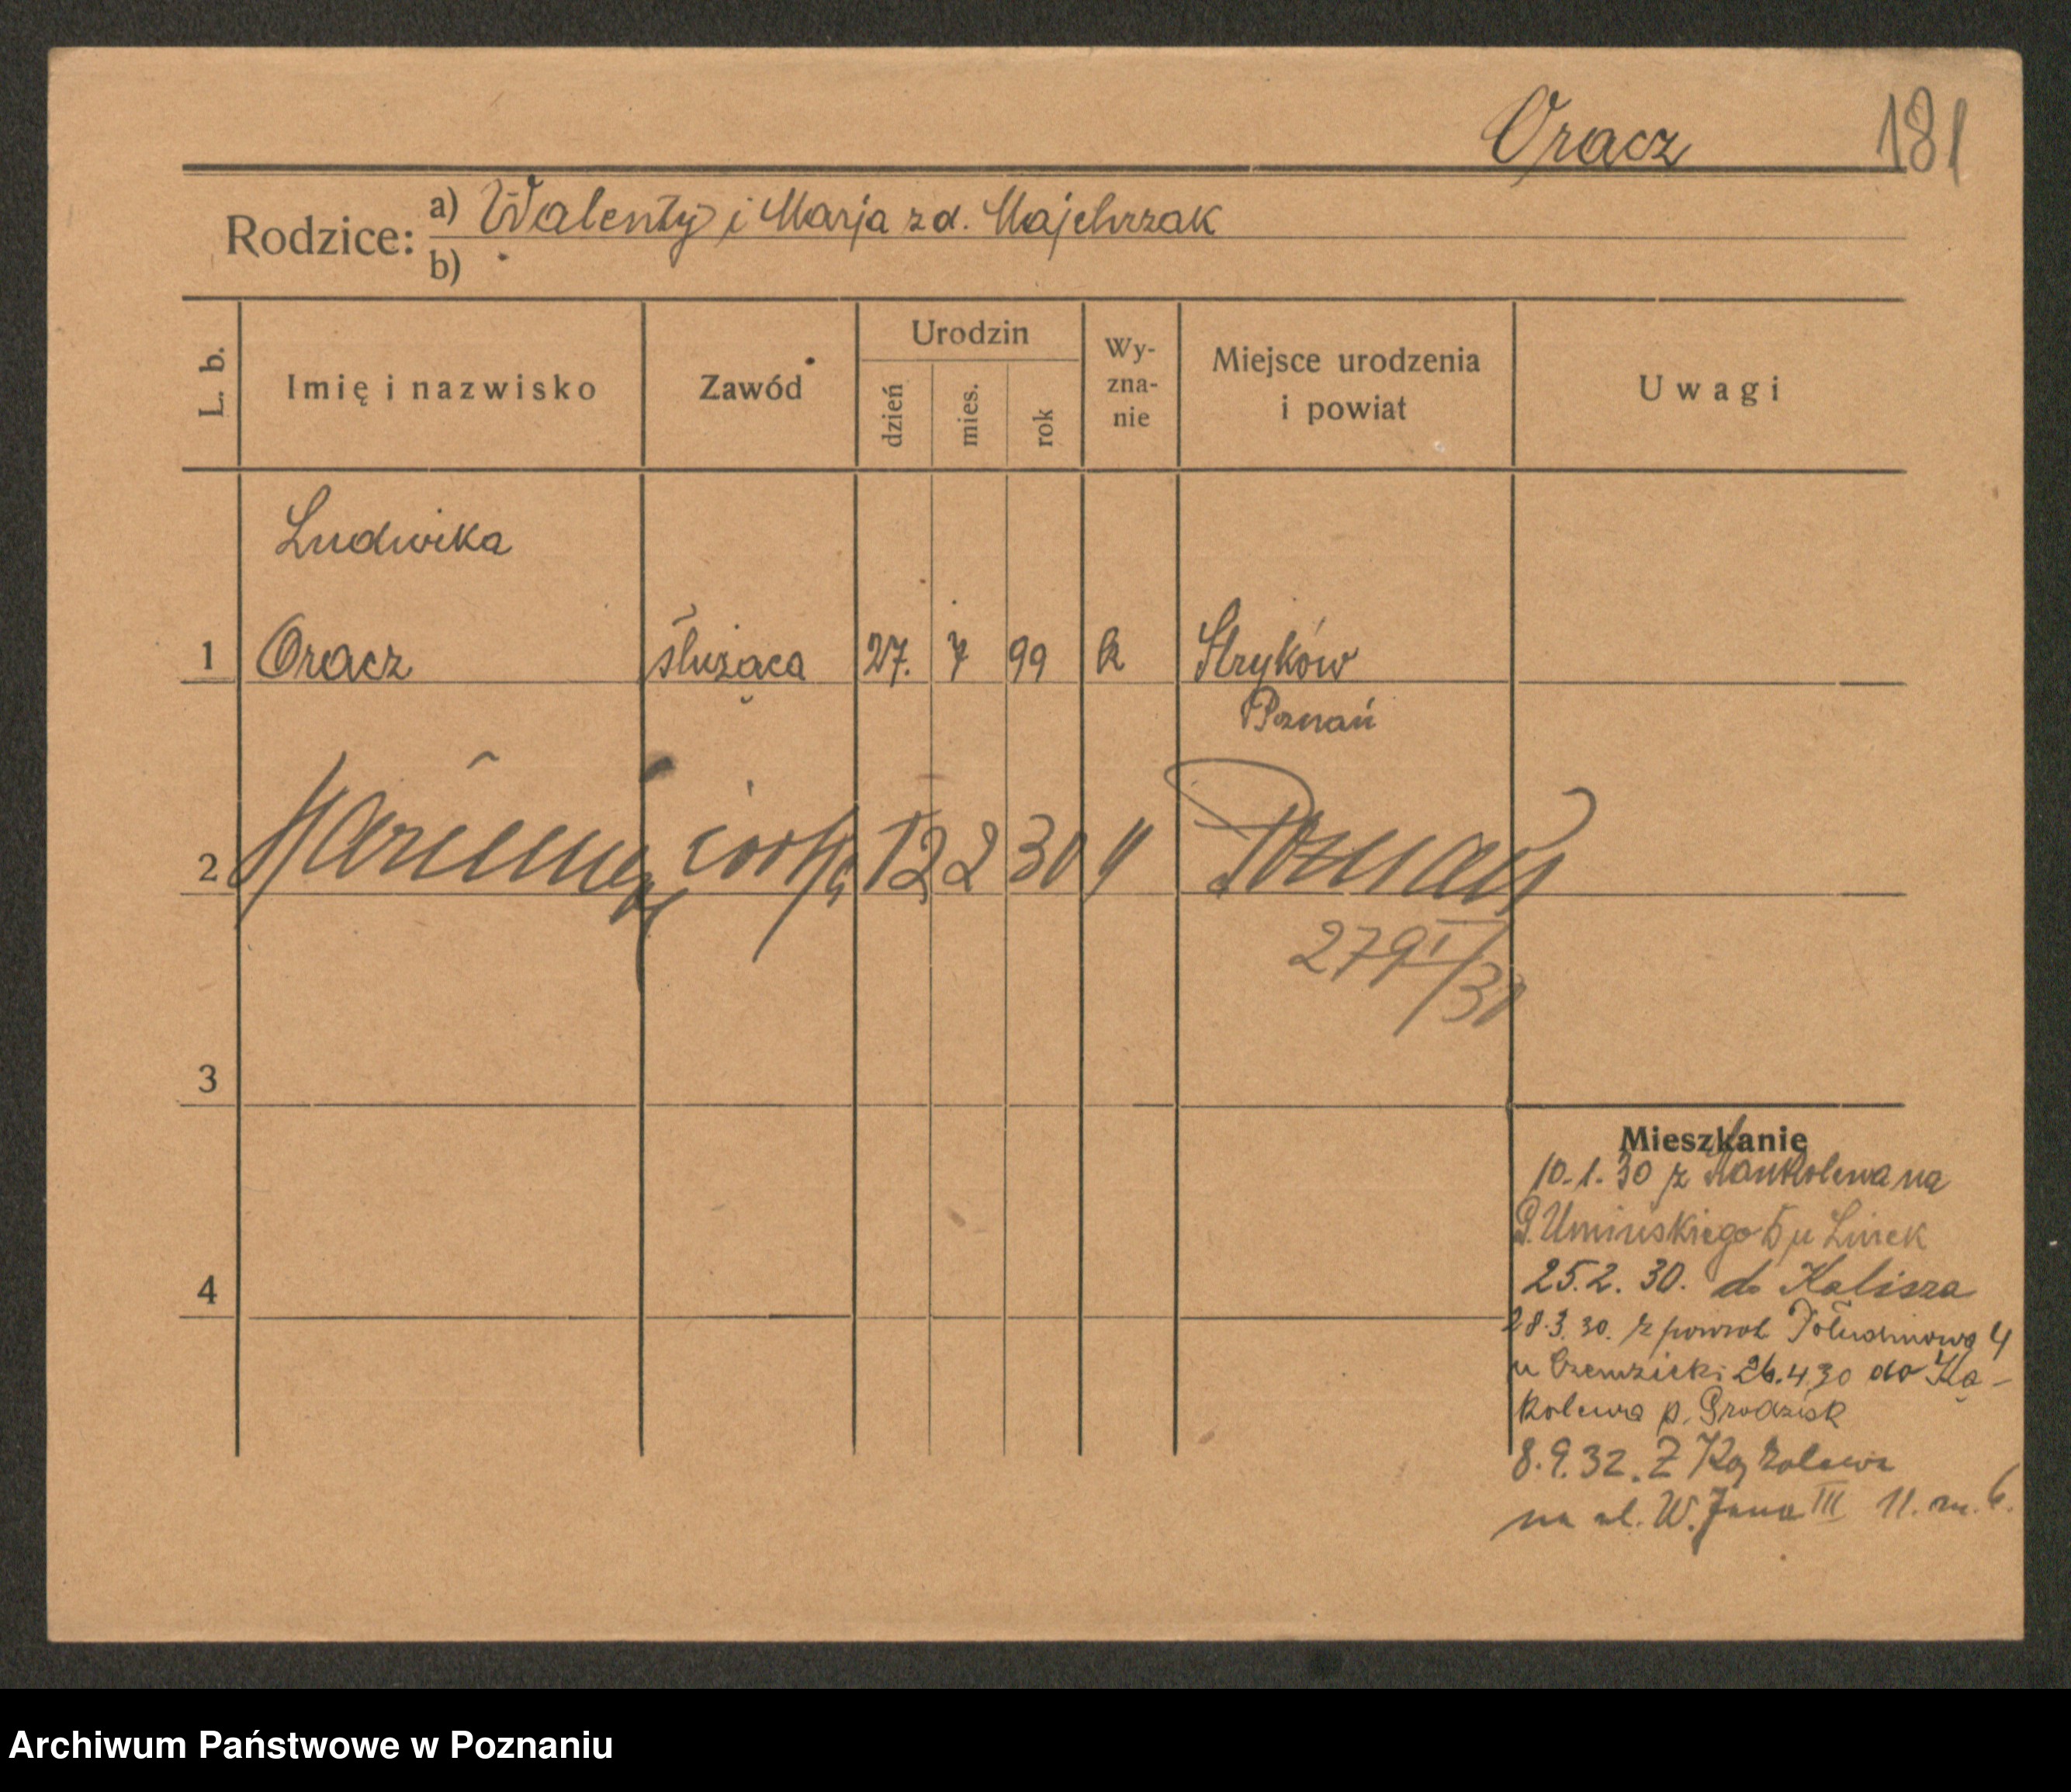 Oracz 181
Rodzice: a) Walenty i Marja z d. Majchrzak
b)
L. b. Imię i nazwisko Zawód Urodzin dzień mies. rok Wy-zna-nie Miejsce urodzenia i powiat Uwagi
Ludwika
1 Oracz służąca 27. 7 99 k Stryków
Poznań
2 córka 12 2 30 Poznań
279
3
Mieszkanie
10.1.30 z na
G. Umińskiego 5 u Linek
25.2.30. do Kalisza
4
28.3.30. z powrot Południowa 4
u 26.4.30 do Ką-
kolewa p. Grodzisk
8.9.32. Z Kąkolewa
na ul. W. Jana III 11. m. 6.
Archiwum Państwowe w Poznaniu